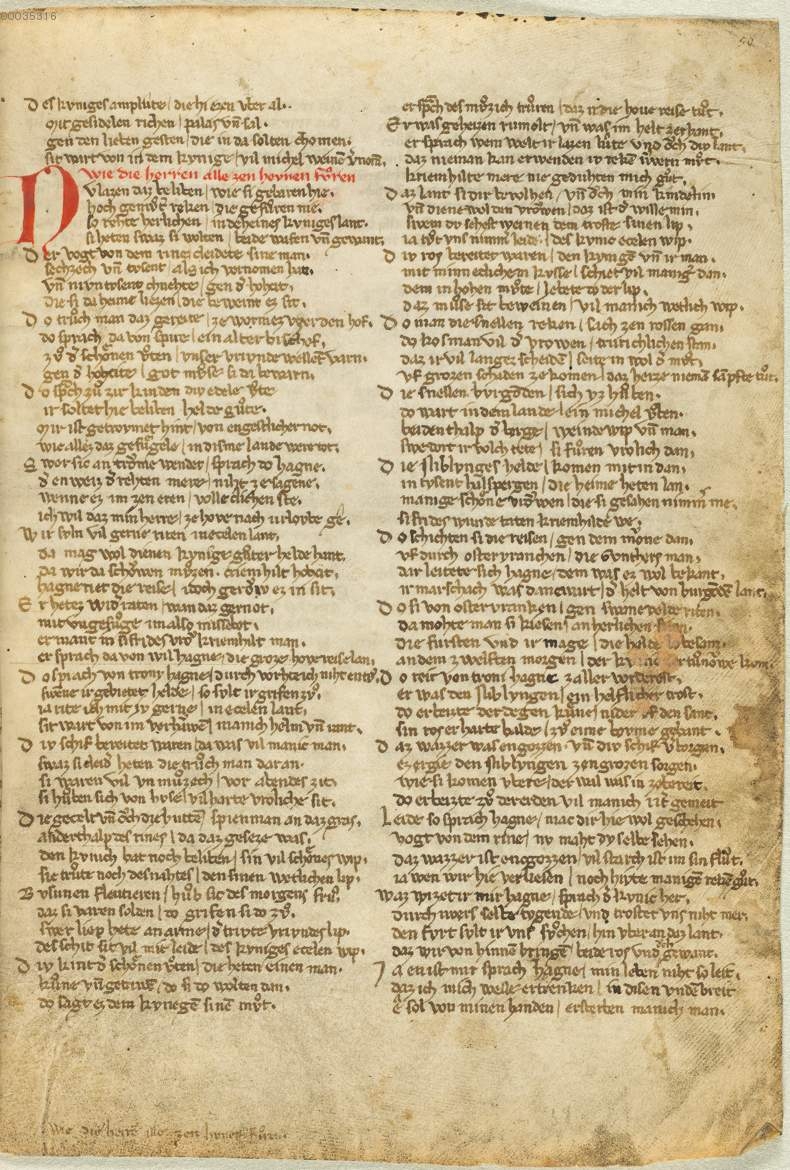 00035316
Des kvniges amplute / die hiezen vber al.
mit gesidelen richen / palas vn̄ sal.
gen den lieben gesten / die in da solten chomen.
sit wart von in dem kvnige / vil michel weinē v̓nomē.
wie die herren alle zen hevnen fv̊ren
Nv lazen daz beliben / wie si gebaren hie.
hoch gemvt̓ reken / die gefv̊ren nie.
so rehte herlichen / in deheines kvniges lant.
si heten swaz si wolten / beide wafen vn̄ gewant.
Der vogt von dem rine / cleidete sine man.
sechzech vn̄ tvsent / als ich vernomen han.
vn̄ nivn tvsent chnehte / gen d̓ hohcit.
die si da heime liezen / die beweint ez sit.
Do trv̊ch man daz gereite / ze wormez vber den hof.
do sprach da von spire / ein alter bischof.
zv̊ d̓ schonen v̊ten / vnser vrivnde wellent varn.
gen d̓ hohcite / got mv̊se si da bewarn.
Do sp̄ch zv̊ zir kinden div edele v̊te
ir soltet hie beliben / helde gv̊te.
mir ist getrovmet hint / von engestlicher not.
wie allez daz gefv̊gele / in disme lande were tot.
Swer sich an trov̊me wendet / sprach do hagne.
d̓ en weiz d̓ rehten mere / niht ze sagene.
wenne ez im zen eren / volleclichen ste.
ich wil daz min herre / ze hove nach vrlovbe ge.
Wir svln vil gerne riten / in ecelen lant.
da mag wol dienen kvnige / gv̊ter helde hant.
da wir da schowen mv̊zen / criemhilt hohcit.
hagne riet die reise / idoch gerow ez in sit.
Er hetez wid̓raten / wan daz gernot.
mit vngefv̊ge im also missebot.
er mant in sifrides / vrov̊ kriemhilt man.
er sprach da von wil hagne / die groze hove reise lan.
Do sprach von trony hagne / durch vorht ich niht entv̊.
swenne ir gebietet helde / so svlt ir grifen zv̊.
ia rite ich mit iv gerne / in ecelen lant.
sit wart von im verhowē / manich helm vn̄ rant.
Div schif bereitet waren / da was vil manic man.
swaz si cleid̓ heten / die trv̊ch man dar an.
si waren vil vnmv̊zech / vor abendes zit.
si hv̊ben sich von hvse / vil harte vroliche sit.
Die gecelt vn̄ ovch die hvttē / spien man an daz gras.
anderthalp des rines / da daz geseze was.
den kvnich bat noch beliben / sin vil schones wip.
sie trvte noch des nahtes / den sinen wetlichen lip.
Bvsvnen flevtieren / hv̊b sic des morgens frv̊.
daz si varen solden / do grifen si do zv̊.
swer liep hete an arme / d̓ trivte vrivndes lip.
des schiet sit vil mit leide / des kvniges ecelen wip.
Div kint d̓ schonen v̊ten / die heten einen man.
kv̊ne vn̄ getriwe / do si do wolten dan.
do sagt ez dem kvnege / sinē mv̊t.
er sp̄ch des mv̊z ich trv̊ren / daz ir die hove reise tv̊t.
Er was geheizen rumolt / vn̄ was im helt zer hant.
er sprach wem wolt ir lazen / lvte vnd ovch div lant.
daz nieman kan erwenden / iv rekē ivwern mv̊t.
kriemhilte mere / nie gedvhten mich gv̊t.
Daz lant si dir bevolhen / vn̄ ovch min kindelin.
vn̄ diene wol den vrowen / daz ist d̓ wille min.
swem dv sehest weinen / dem troste sinen lip.
ia tv̊t vns nimm̓ leide / des kvnic ecelen wip.
Div ros bereitet waren / den kvnigē vn̄ ir man.
mit minneclichem kvsse / schiet vil maniger dan.
dem in hohen mv̊te / lebete do der lip.
daz mv̊se sit beweinen / vil manich wetlich wip.
Do man die snellen reken / sach zen rossen gan.
do kos man vil d̓ vrowen / trv̊richlichen stan.
daz ir vil langez scheiden / seite in wol d̓ mv̊t.
vf grozen schaden ze komen / daz herze niemā sanfte tv̊t.
Die snellen bvrgōden / sich vz hv̊ben.
do wart in dem lande / ein michel v̊ben.
beidenthalp d̓ berge / weinde wip vn̄ man.
swie dort ir volch tete / si fv̊ren vrolich dan.
Die niblvnges helde / komen mit in dan.
in tvsent halspergen / die heime heten lan.
manige schone vrowen / die si gesahen nimm̓ me.
sifrides wunde taten kriemhilte we.
Do schichten si die reisen / gen dem mov̊ne dan.
vf durch oster vranchen / die gvnthers man.
dar leitete sich hagne / dem was ez wol bekant.
ir marschach was dancwart / d̓ helt von burgōdē lant.
Do si von oster vranken / gen swanevelde riten.
da mohte man si kiesen / an herlichen siten.
die fursten vnd ir mage / die helde lobesam.
an dem zwelften morgen / der kvnic zer tv̊nowe kom.
Do reit von troni hagne / zaller vorderost.
er was den niblvngen / ein helflicher trost.
do erbeizte der degen kv̊ne / nider vf den sant.
sin ros er harte balde / zv̊ eime bovme gebant.
Daz wazzer was engozzen / vn̄ div schif v̓borgen.
ez ergie den niblvngen / zen grozen sorgen.
wie si komen vbere / der wal was in ze breit.
do erbeizte zv̊ der erden / vil manich riter gemeit
Leide so sprach hagne / mac dir hie wol geschehen.
vogt von dem rine / nv maht dv selbe sehen.
daz wazzer ist engozzen / vil starch ist im sin flv̊t.
ia wen wir hie verliesen / noch hivte manigē rekē gv̊t.
Waz wizet ir mir hagne / sprach d̓ kvnic her.
durch iwers selbe tvgende / vnd trostet vns niht mer.
den fvrt svlt ir vns sv̊chen / hin vber an daz lant.
daz wir von hinnē bringen / beide ros vnd ovch gewant.
Ja en ist mir sprach hagne / min leben niht so leit.
daz ich mich welle ertrenken / in disen vnden breit
e̓ sol von minen handen / ersterben manich man.
wie die herrē alle zen hevnen fv̊ren.